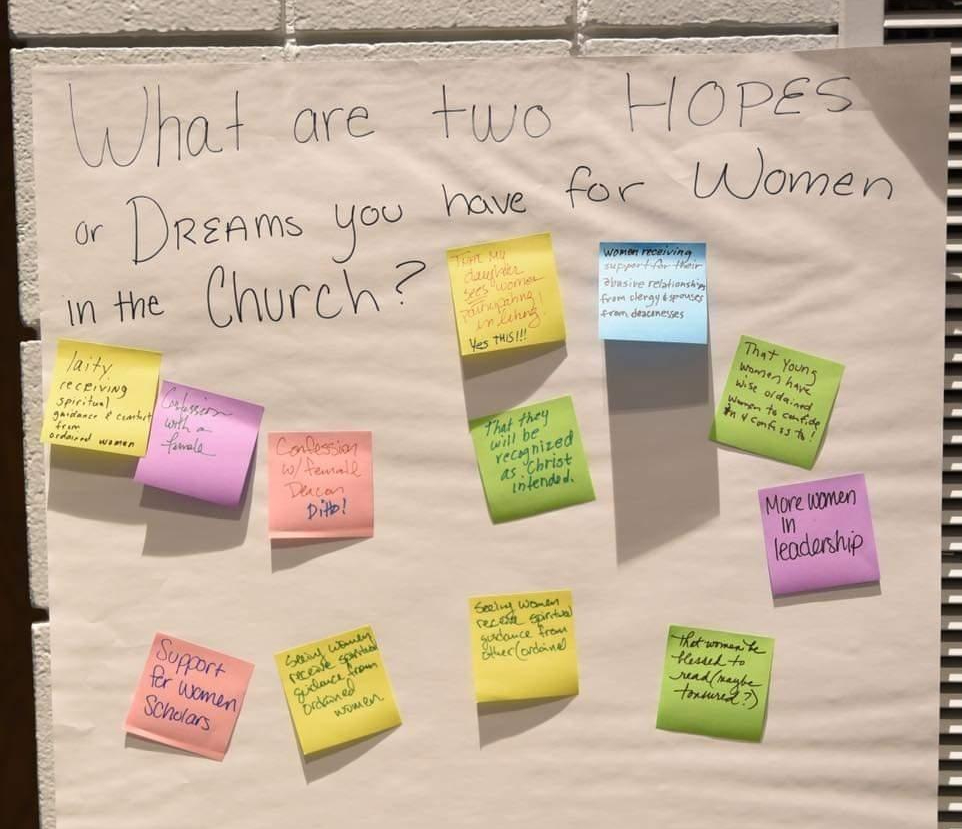 What are two HOPES
or DREAMS you have for Women
in the Church?
That my
daughter
sees women
participating
in liturgy!
Yes THIS!!!
Women receiving
support for their
abusive relationships
from clergy & spouses
from deaconesses
laity
receiving
spiritual
guidance & comfort
from
ordained women
Confession
with a
female
Confession
w/ female
Deacon
Ditto!
That they
will be
recognized
as Christ
intended.
That young
women have
wise ordained
women to confide
in & confess to!
More women
in
leadership
Support
for women
Scholars
Seeing women
receive spiritual
guidance from
ordained
women
Seeing women
receive spiritual
guidance from
other (ordained
That women be
blessed to
read (maybe
tonsured?)